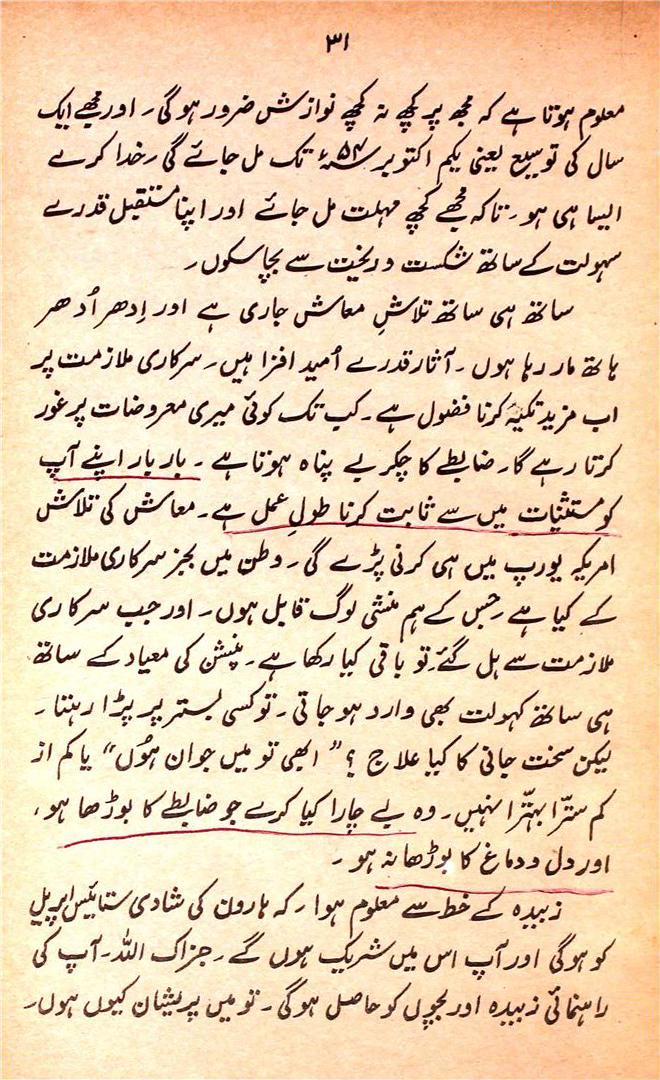 ۳۱
معلوم ہوتا ہے کہ مجھ پر کچھ نہ کچھ نوازش ضرور ہوگی۔ اور مجھے ایک
سال کی توسیع یعنی یکم اکتوبر ۵۴ء تک مل جائے گی۔ خدا کرے
ایسا ہی ہو۔ تاکہ مجھے کچھ مہلت مل جائے اور اپنا مستقبل قدرے
سہولت کے ساتھ شکست و ریخت سے بچا سکوں۔
ساتھ ہی ساتھ تلاشِ معاش جاری ہے اور اِدھر اُدھر
ہاتھ مار رہا ہوں۔ آثار قدرے اُمید افزا ہیں۔ سرکاری ملازمت پر
اب مزید تکیہ کرنا فضول ہے۔ کب تک کوئی میری معروضات پر غور
کرتا رہے گا۔ ضابطے کا چکر بے پناہ ہوتا ہے۔ بار بار اپنے آپ
کو مستثنیات میں سے ثابت کرنا طولِ عمل ہے۔ معاش کی تلاش
امریکہ یورپ میں ہی کرنی پڑے گی۔ وطن میں بجز سرکاری ملازمت
کے کیا ہے جس کے ہم منشی لوگ قابل ہوں۔ اور جب سرکاری
ملازمت سے ہل گئے تو باقی کیا رکھا ہے۔ پنشن کی معیاد کے ساتھ
ہی ساتھ کہولت بھی وارد ہو جاتی۔ تو کسی بستر پر پڑا رہتا۔
لیکن سخت جانی کا کیا علاج؟ ”ابھی تو میں جوان ہوں“ یا کم از
کم سترا بہترا نہیں۔ وہ بے چارا کیا کرے جو ضابطے کا بوڑھا ہو،
اور دل و دماغ کا بوڑھا نہ ہو۔
زبیدہ کے خط سے معلوم ہوا۔ کہ ہارون کی شادی ستائیس اپریل
کو ہوگی اور آپ اس میں شریک ہوں گے۔ جزاک اللہ۔ آپ کی
راہنمائی زبیدہ اور بچوں کو حاصل ہوگی۔ تو میں پریشان کیوں ہوں۔